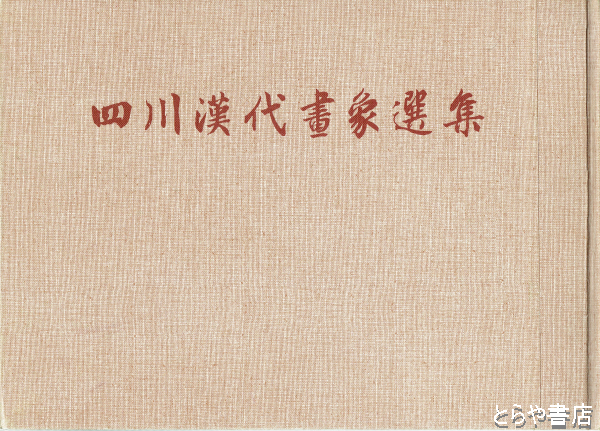 四川漢代畫象選集
とらや書店